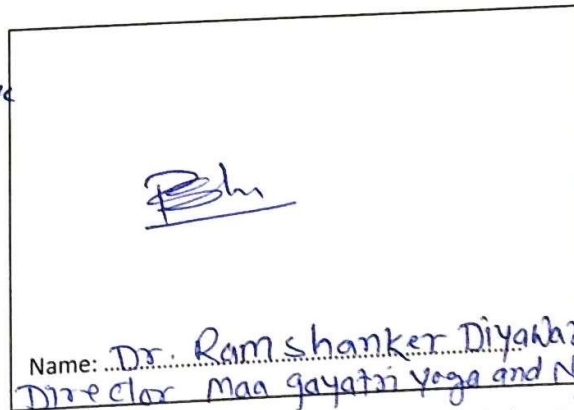 Name: Dr. Ramshanker
Director Maa gayatri yoga and N